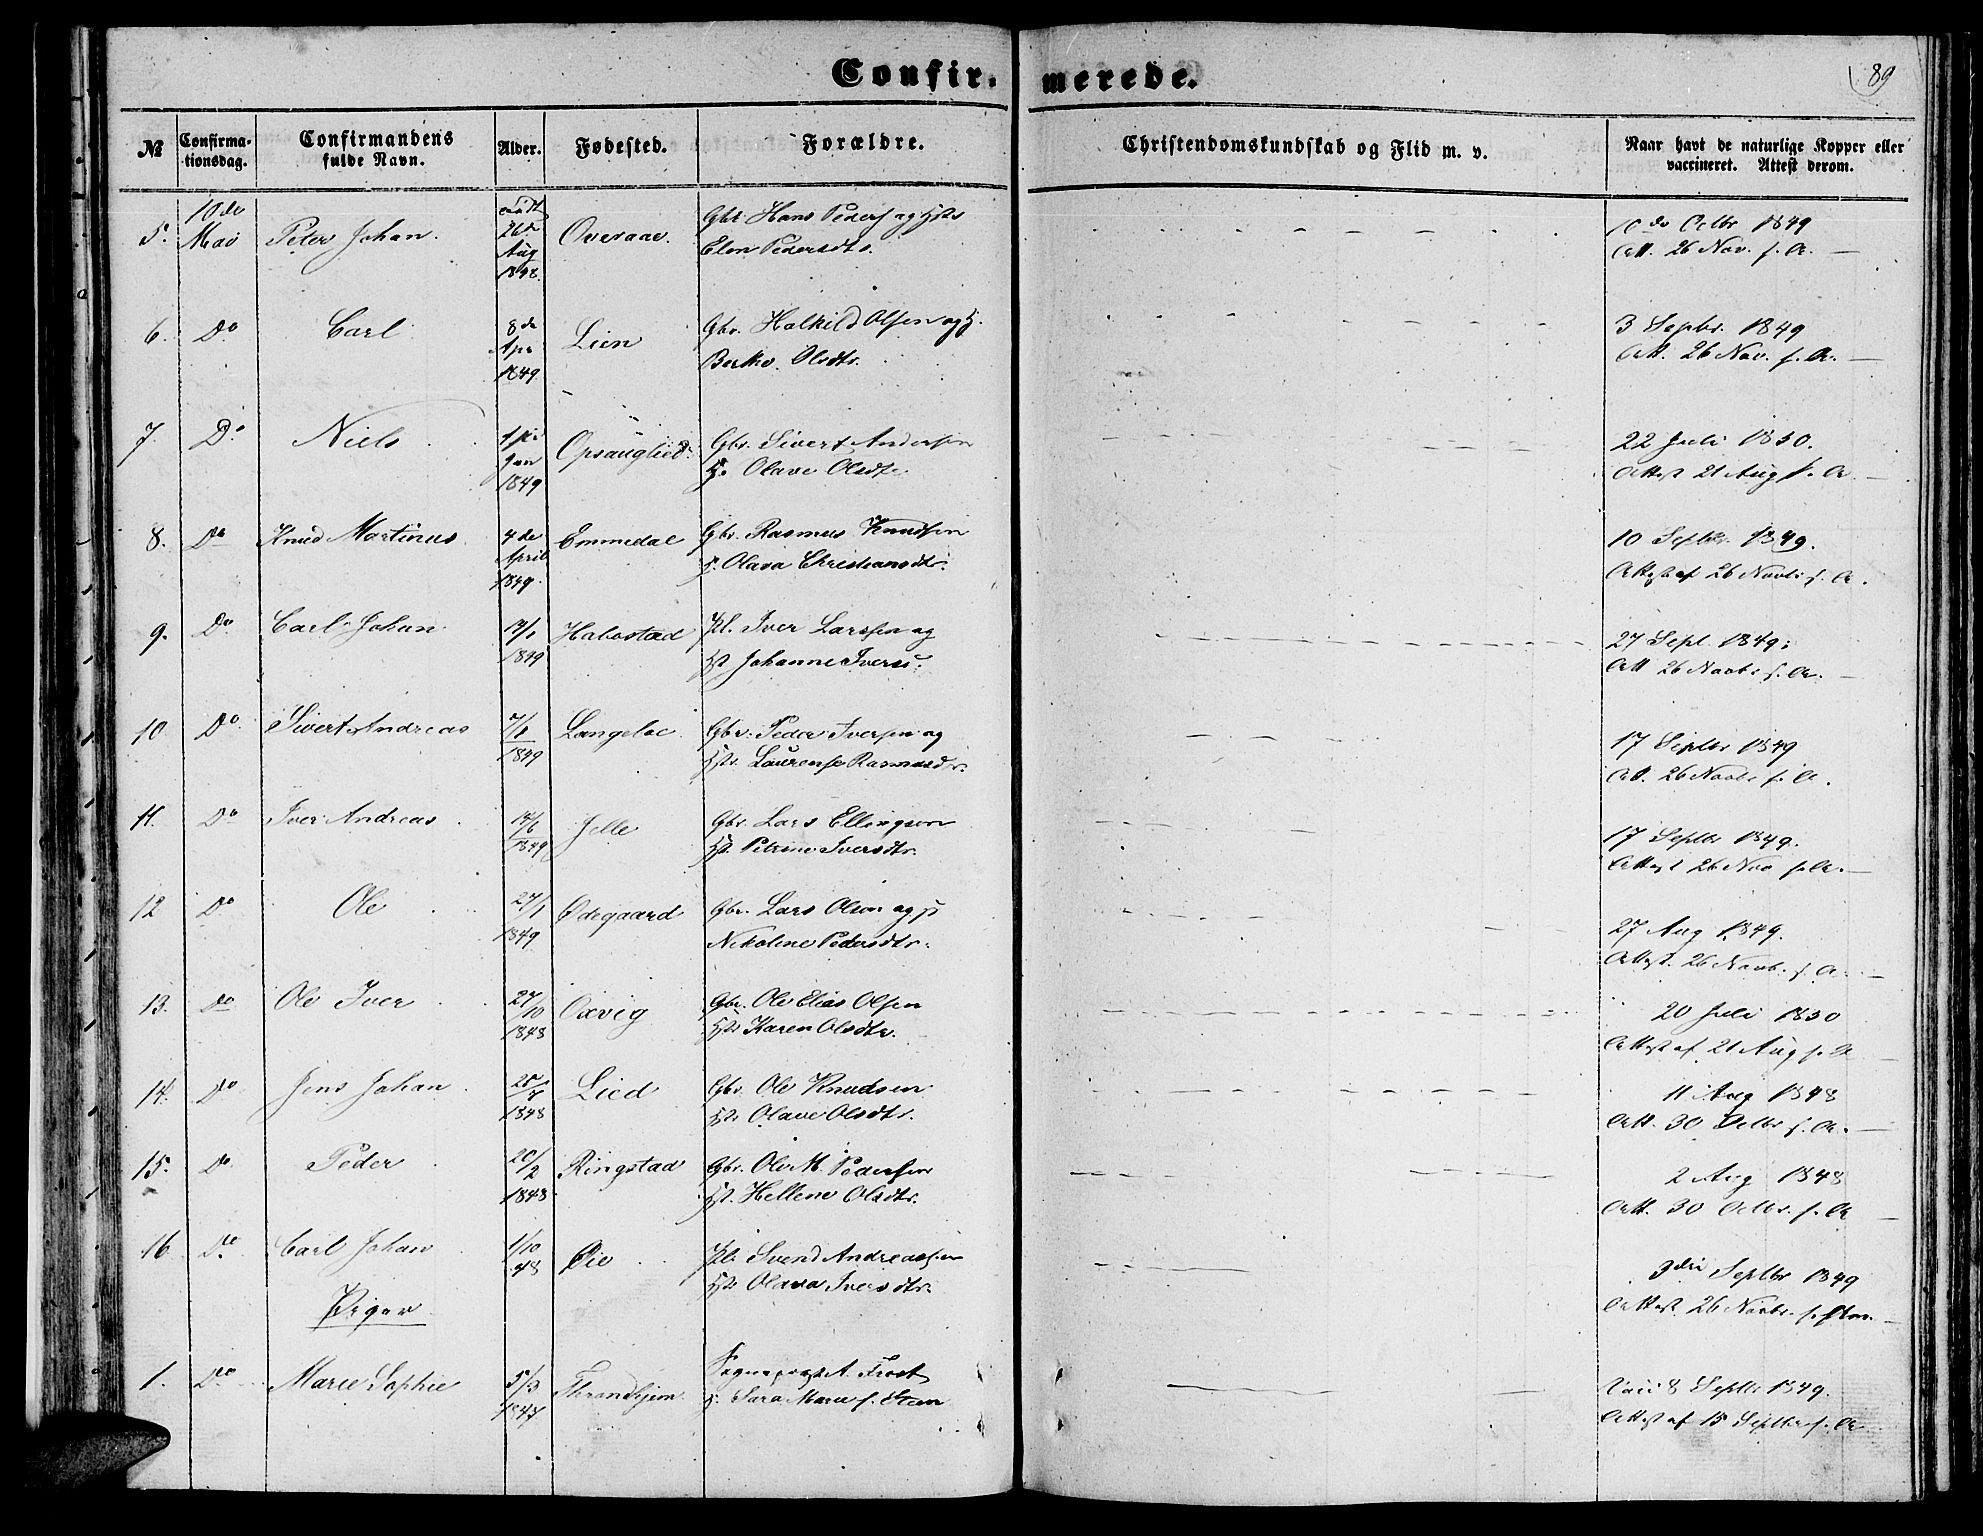 Confirmerede.
89
№
Confirma-
tionsdag.
Confirmandens
fulde Navn.
Alder.
Fødested.
Forældre.
Christendomskundskab og Flid m. v.
Naar havt de naturlige Kopper eller
vaccineret. Attest derom.
5. 10de Mai Peter Johan. 26de Aug 1848. Overaae. Gbr. Hans Peders. og Hst.
Elen Pedersdtr.
10de Octbr 1849
Att. 26 Nov. s. A.
6. Do Carl 8de Apr 1849 Lien Gbr. Halkild Olsen og H.
Berthe Olsdtr.
3 Septbr. 1849
Att. 26 Nov. s. A.
7. Do Niels Jan 1849 Opsauglied. Gbr. Sivert Andersen
H. Olave Olsdtr.
22 Juli 1850.
Attest 21 Aug s. A.
8. Do Knud Martinus 4de April 1849. Emmedal Gbr. Rasmus Knudsen
H. Olava Christiansdtr.
10 Septbr. 1849.
Attest af 26 Novbr s. A.
9. Do Carl Johan 1849 Halsstad Pl. Iver Larssen og
Hst Johanne Iversd.
27 Sept. 1849.
Att 26 Novbr s. A.
10 Do Sivert Andreas 1849 Langeloe Gbr. Peder Iversen og
Hst. Laurense Rasmusdr.
17 Septbr 1849
Att. 26 Novbr s. A.
11. Do Iver Andreas 1849 Jelle Gbr. Lars Ellingsen
Hst. Petrine Iversdtr.
17 Septbr 1849.
Attest 26 Nov s. A.
12 Do Ole 27/1 1849 Ødegaard Gbr. Lars Olsen og H
Nikoline Pedersdtr.
27 Aug 1849.
Attest. 26 Novb. s. A.
13. Do Ole Iver 27/10 1848 Oxvig Gbr. Ole Elias Olsen
Hst Karen Olsdtr.
20 Juli 1850
Attest af 21 Aug s. A
14. Do Jens Johan 1848 Lied Gbr. Ole Knudsen
Hst Olave Olsdtr.
11 Aug 1848
Att. 30 Octbr s. A.
15. Do Peder 20/2 1848 Ringstad Gbr. Ole M. Pedersen
Hst. Hellene Olsdtr.
2 Aug 1848
Att. 30 Octbr. s. A
16 Do Carl Johan 1/10 48 Øie Pl. Svend Andreassen
Hst Olava Iversdtr.
3die Septbr 1849
Attest 26 Novbr. s.
Piger
1. Do Marie Sophie 5/3 1847 Throndhjem Sognepræst A. Frost
H. Sara Marie f. Steen
Vacc 8 Septbr 1849.
Attest af 15 Septbr s. A